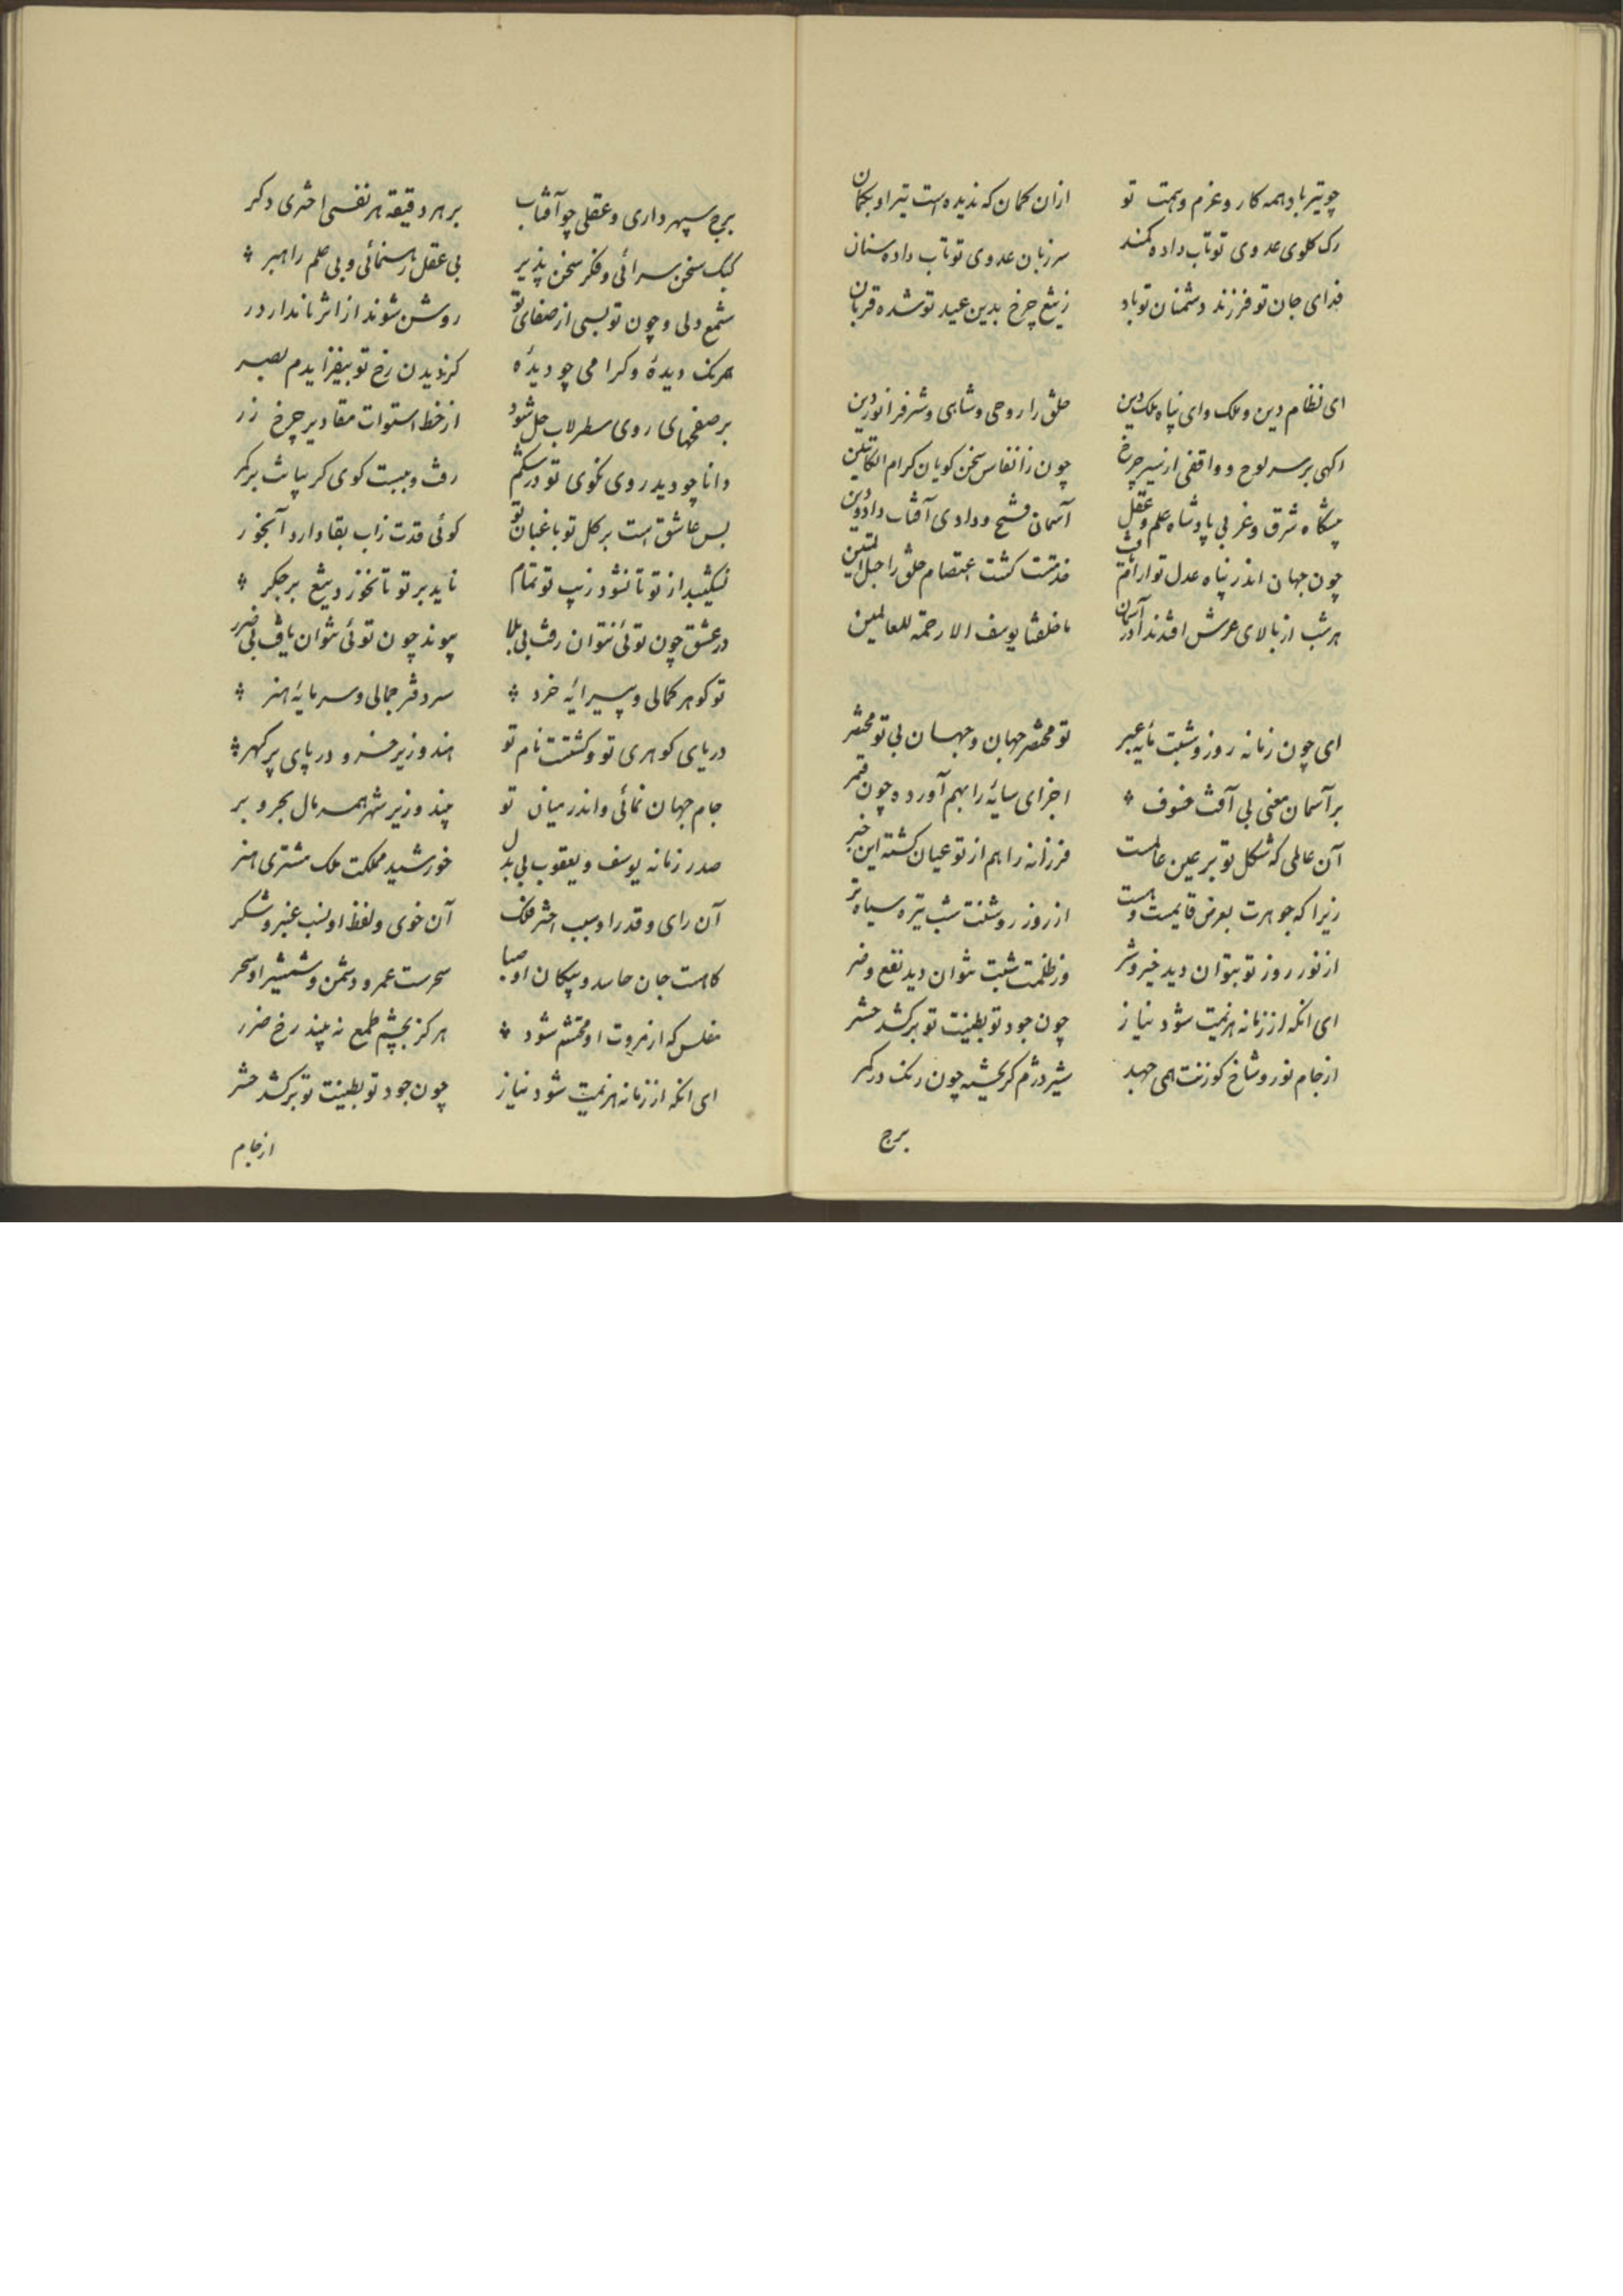 چو تیر باد همه کار و عزم و همت تو ازان کمان که ندیده است تیر او بکمان
رک کلوی عدوی تو تاب داده کمند سر زبان عدوی تو تاب داده سنان
فدای جان تو فرزند دشمنان تو باد ز تیغ چرخ بدین عید تو شده قربان
ای نظام دین و ملک و ای پناه ملک و دین خلق را روحی و شاهی و شرفرا نور دین
اکهی بر سر لوح و واقفی از سیر چرخ چون ز انفاس سخن کویان کرام الکاتبین
پیشگاه شرق و غربی پادشاه علم و عقل آسمان فتح و دادی آفتاب داد و دین
چون جهان اندر پناه عدل تو ارام یافت خدمتت کشت اعتصام خلق را حبل المتین
هر شب از بالای عرش افتد ندا در آسمان ما خلقنا یوسف الا رحمة للعالمین
ای چون زمانه روز و شبت مایه عبر تو مختصر جهان و جهان بی تو مختصر
بر آسمان معنی بی آفت خسوف اجزای سایه را بهم آورده چون قمر
آن عالمی که شکل تو بر عین عالمست فرزانه را هم از تو عیان کشته این خبر
زیرا که جوهرت بعرض قایمست و هست از روز روشنت شب تیره سیاه تر
از نور روز تو بتوان دید خیر و شر وز ظلمت شبت نتوان دید نفع و ضر
ای انکه از زمانه هزیمت شود نیاز چون جود تو بطینت تو برکشد حشر
از جام نور و شاخ کوزنت همی جهد شیر دژم کریخته چون رنک در کمر
برج
برج سپهر داری و عقلی چو آفتاب بر هر دقیقه هر نفسی اختری دکر
کبک سخن سرائی و فکر سخن پذیر بی عقل رهنمائی و بی علم راهبر
شمع دلی و چون تو بسی از صفای تو روشن شوند از اثر ماندار در
همرنک دیدهٔ و کرامی چو دیدهٔ کز دیدن رخ تو بیفزایدم بصر
بر صفحهای روی سطرلاب حل شود از خط استوات مقادیر چرخ زر
دانا چو دید روی نکوی تو در شکم رفت و ببست کوی کریبانت بر کمر
بس عاشق است بر کل تو باغبان تو کوئی قدت زاب بقا دارد آبخور
نشکیبد از تو تا نشود زیب تو تمام ناید بر تو تا نخورد تیغ بر جکر
در عشق چون توئی نتوان رفت بی بلا پیوند چون توئی نتوان یافت بی ضرر
تو کوهر کمالی و پیرایهٔ خرد سر دفتر جمالی و سرمایهٔ هنر
دریای کوهری تو و کشتست نام تو اندر وزیر خسرو دریای پر کهر
جام جهان نمائی و اندر میان تو بیند وزیر شهر همسال بحر و بر
صدر زمانه یوسف و یعقوب بی بدل خورشید مملکت ملک مشتری هنر
آن رای و قدر او سبب اختر فلک آن خوی و لفظ او نسب عنبر و شکر
کاهست جان حاسد و پیکان او صبا سحرست عمر و دشمن و شمشیر او سحر
مفلس که از مروت او محتشم شود هرکز بچشم طمع نه بیند رخ ضرر
ای انکه از زمانه هزیمت شود نیاز چون جود تو بطینت تو برکشد حشر
از جام